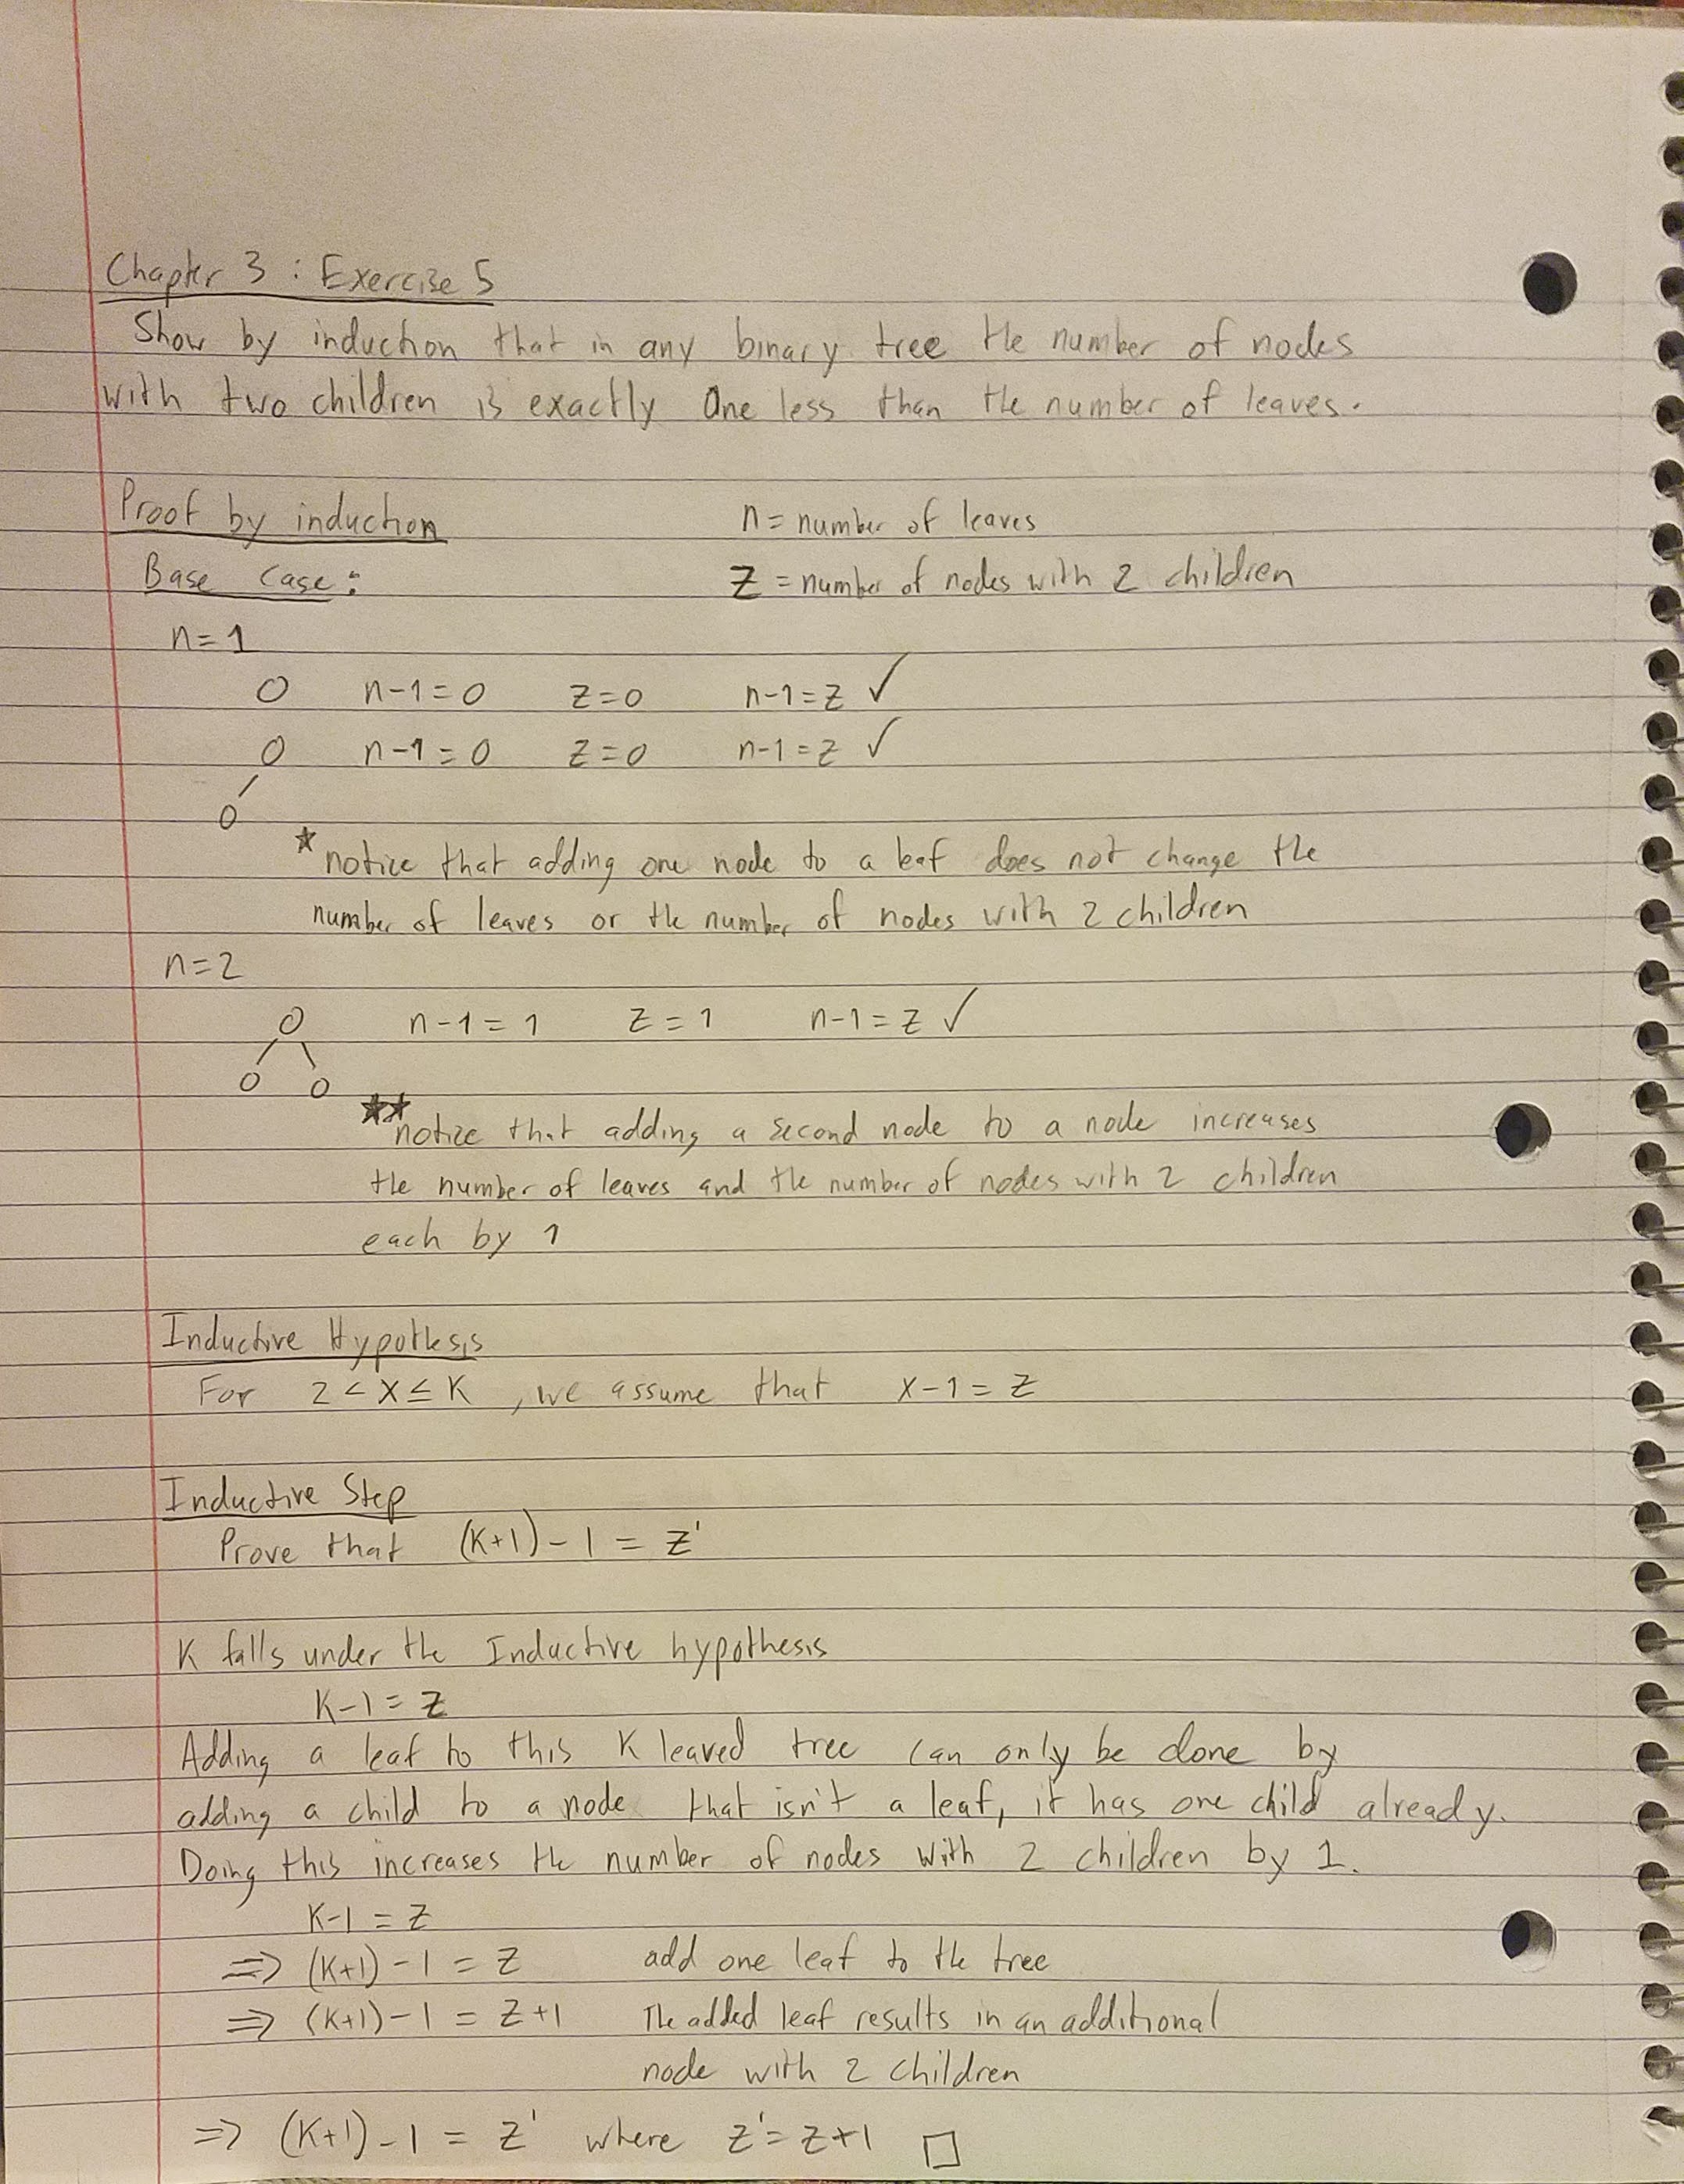 Chapter 3 : Exercise 5
Show by induction that in any binary tree the number of nodes
with two children is exactly One less than the number of leaves.
Proof by induction
n = number of leaves
Base Case:
Z = number of nodes with 2 children
n = 1
O n-1=0 Z=0 n-1=Z ✓
O n-1=0 Z=0 n-1=Z ✓
O
* notice that adding one node to a leaf does not change the
number of leaves or the number of nodes with 2 children
n=2
O n-1=1 Z=1 n-1=Z ✓
O O
** notice that adding a second node to a node increases
the number of leaves and the number of nodes with 2 children
each by 1
Inductive Hypothesis
For 2 < X ≤ K , we assume that X-1 = Z
Inductive Step
Prove that (K+1)-1 = Z'
K falls under the Inductive hypothesis
K-1 = Z
Adding a leaf to this K leaved tree can only be done by
adding a child to a node that isn't a leaf, it has one child already.
Doing this increases the number of nodes with 2 children by 1.
K-1 = Z
⇒ (K+1)-1 = Z add one leaf to the tree
⇒ (K+1)-1 = Z+1 The added leaf results in an additional
node with 2 children
⇒ (K+1)-1 = Z' where Z'=Z+1 □